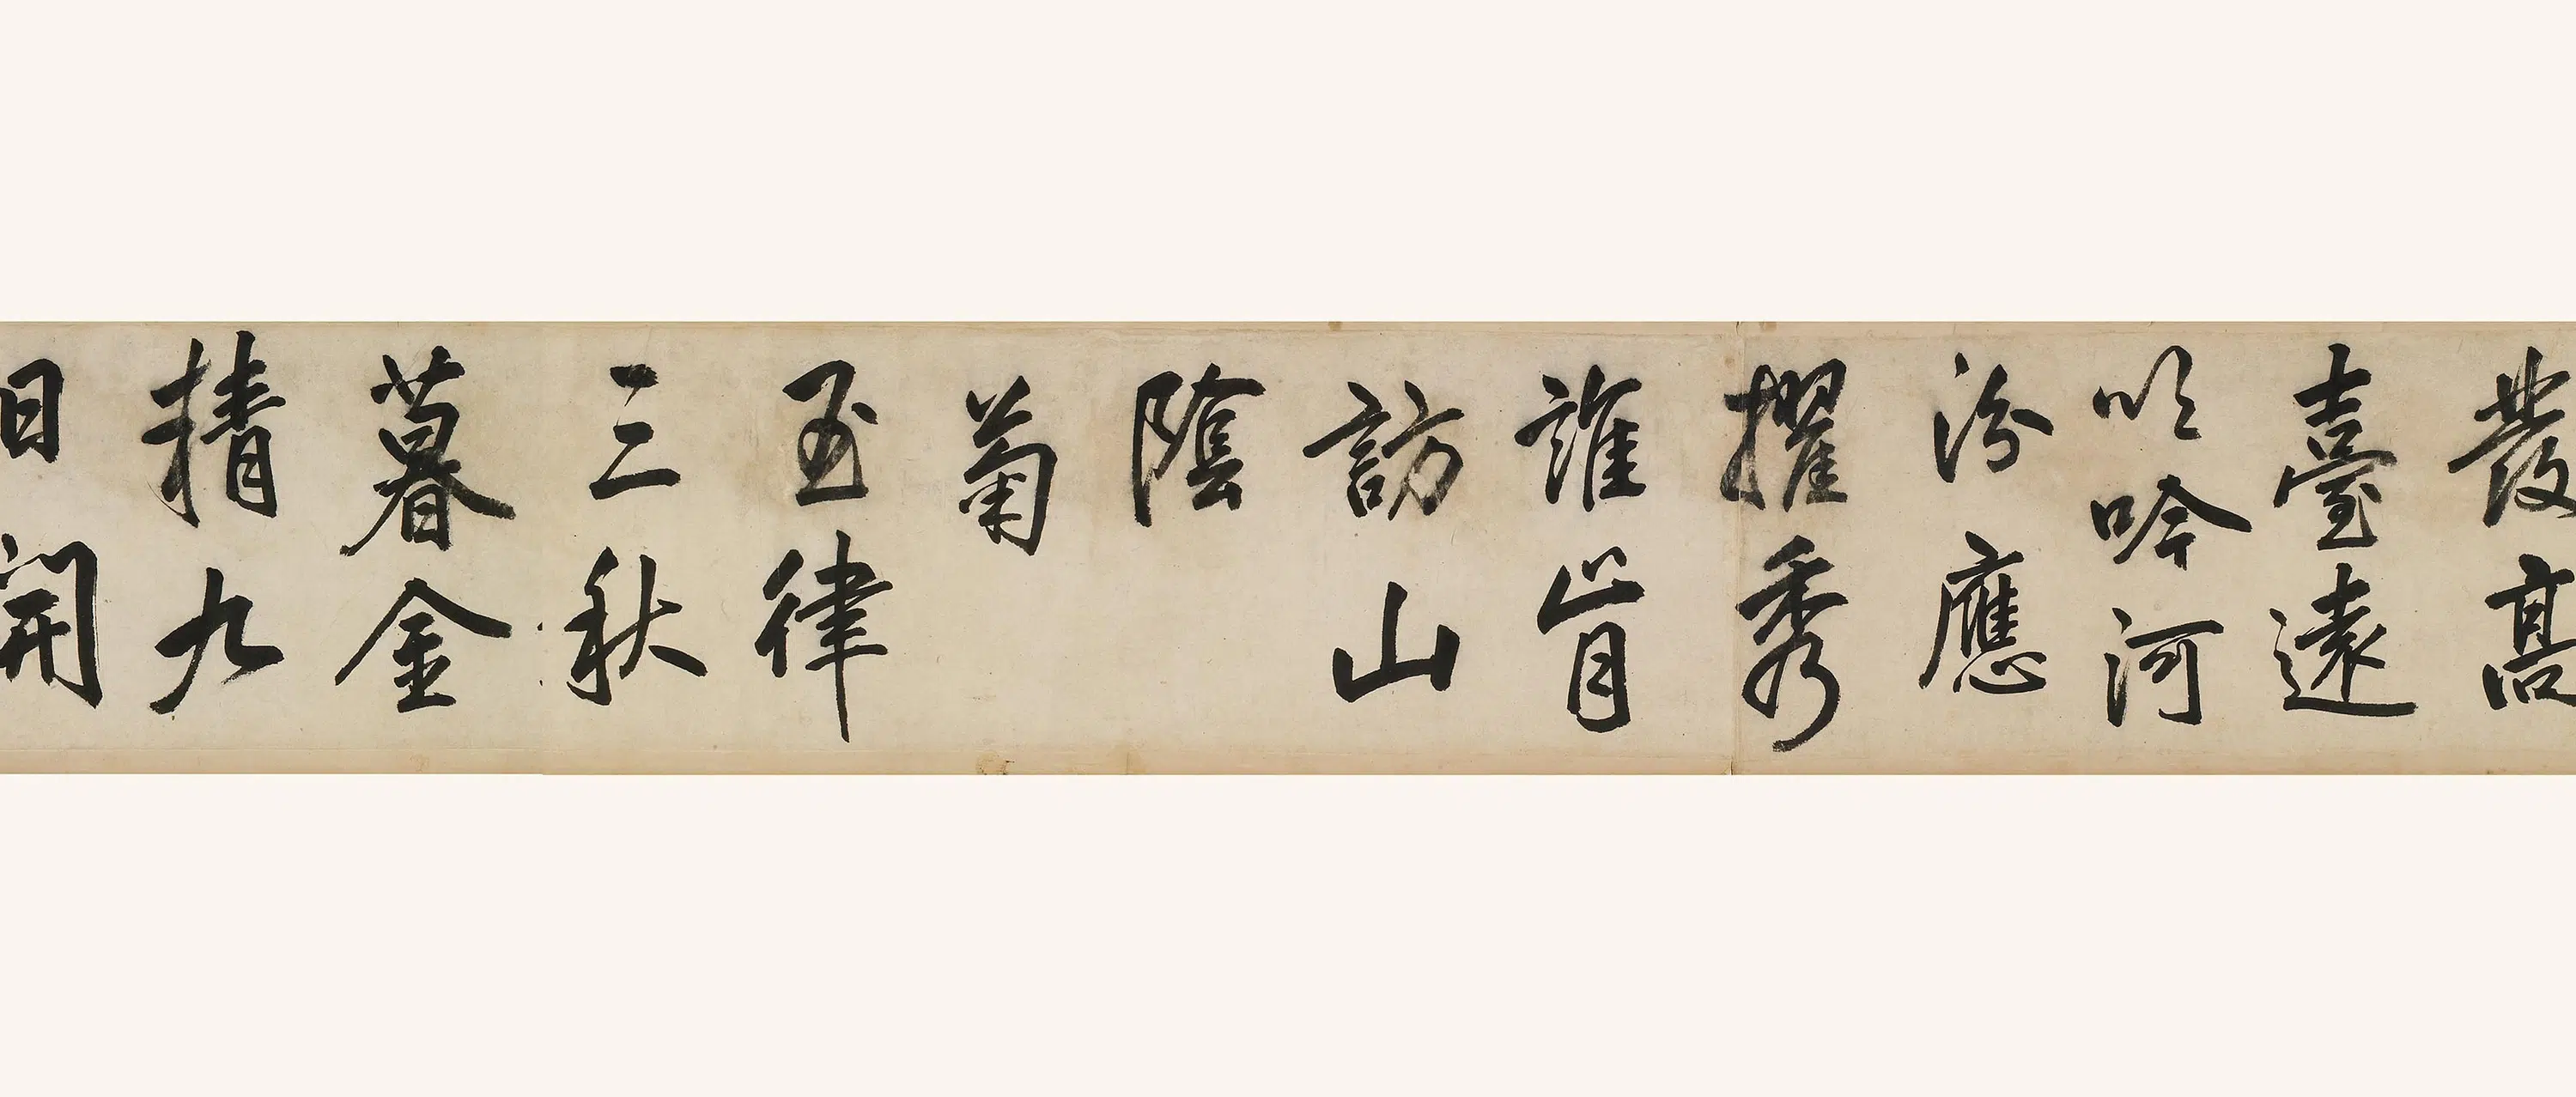 發高
臺遠
吹吟河
汾應
擢秀
誰肯
訪山
陰
菊
玉律
三秋
暮金
精九
日開